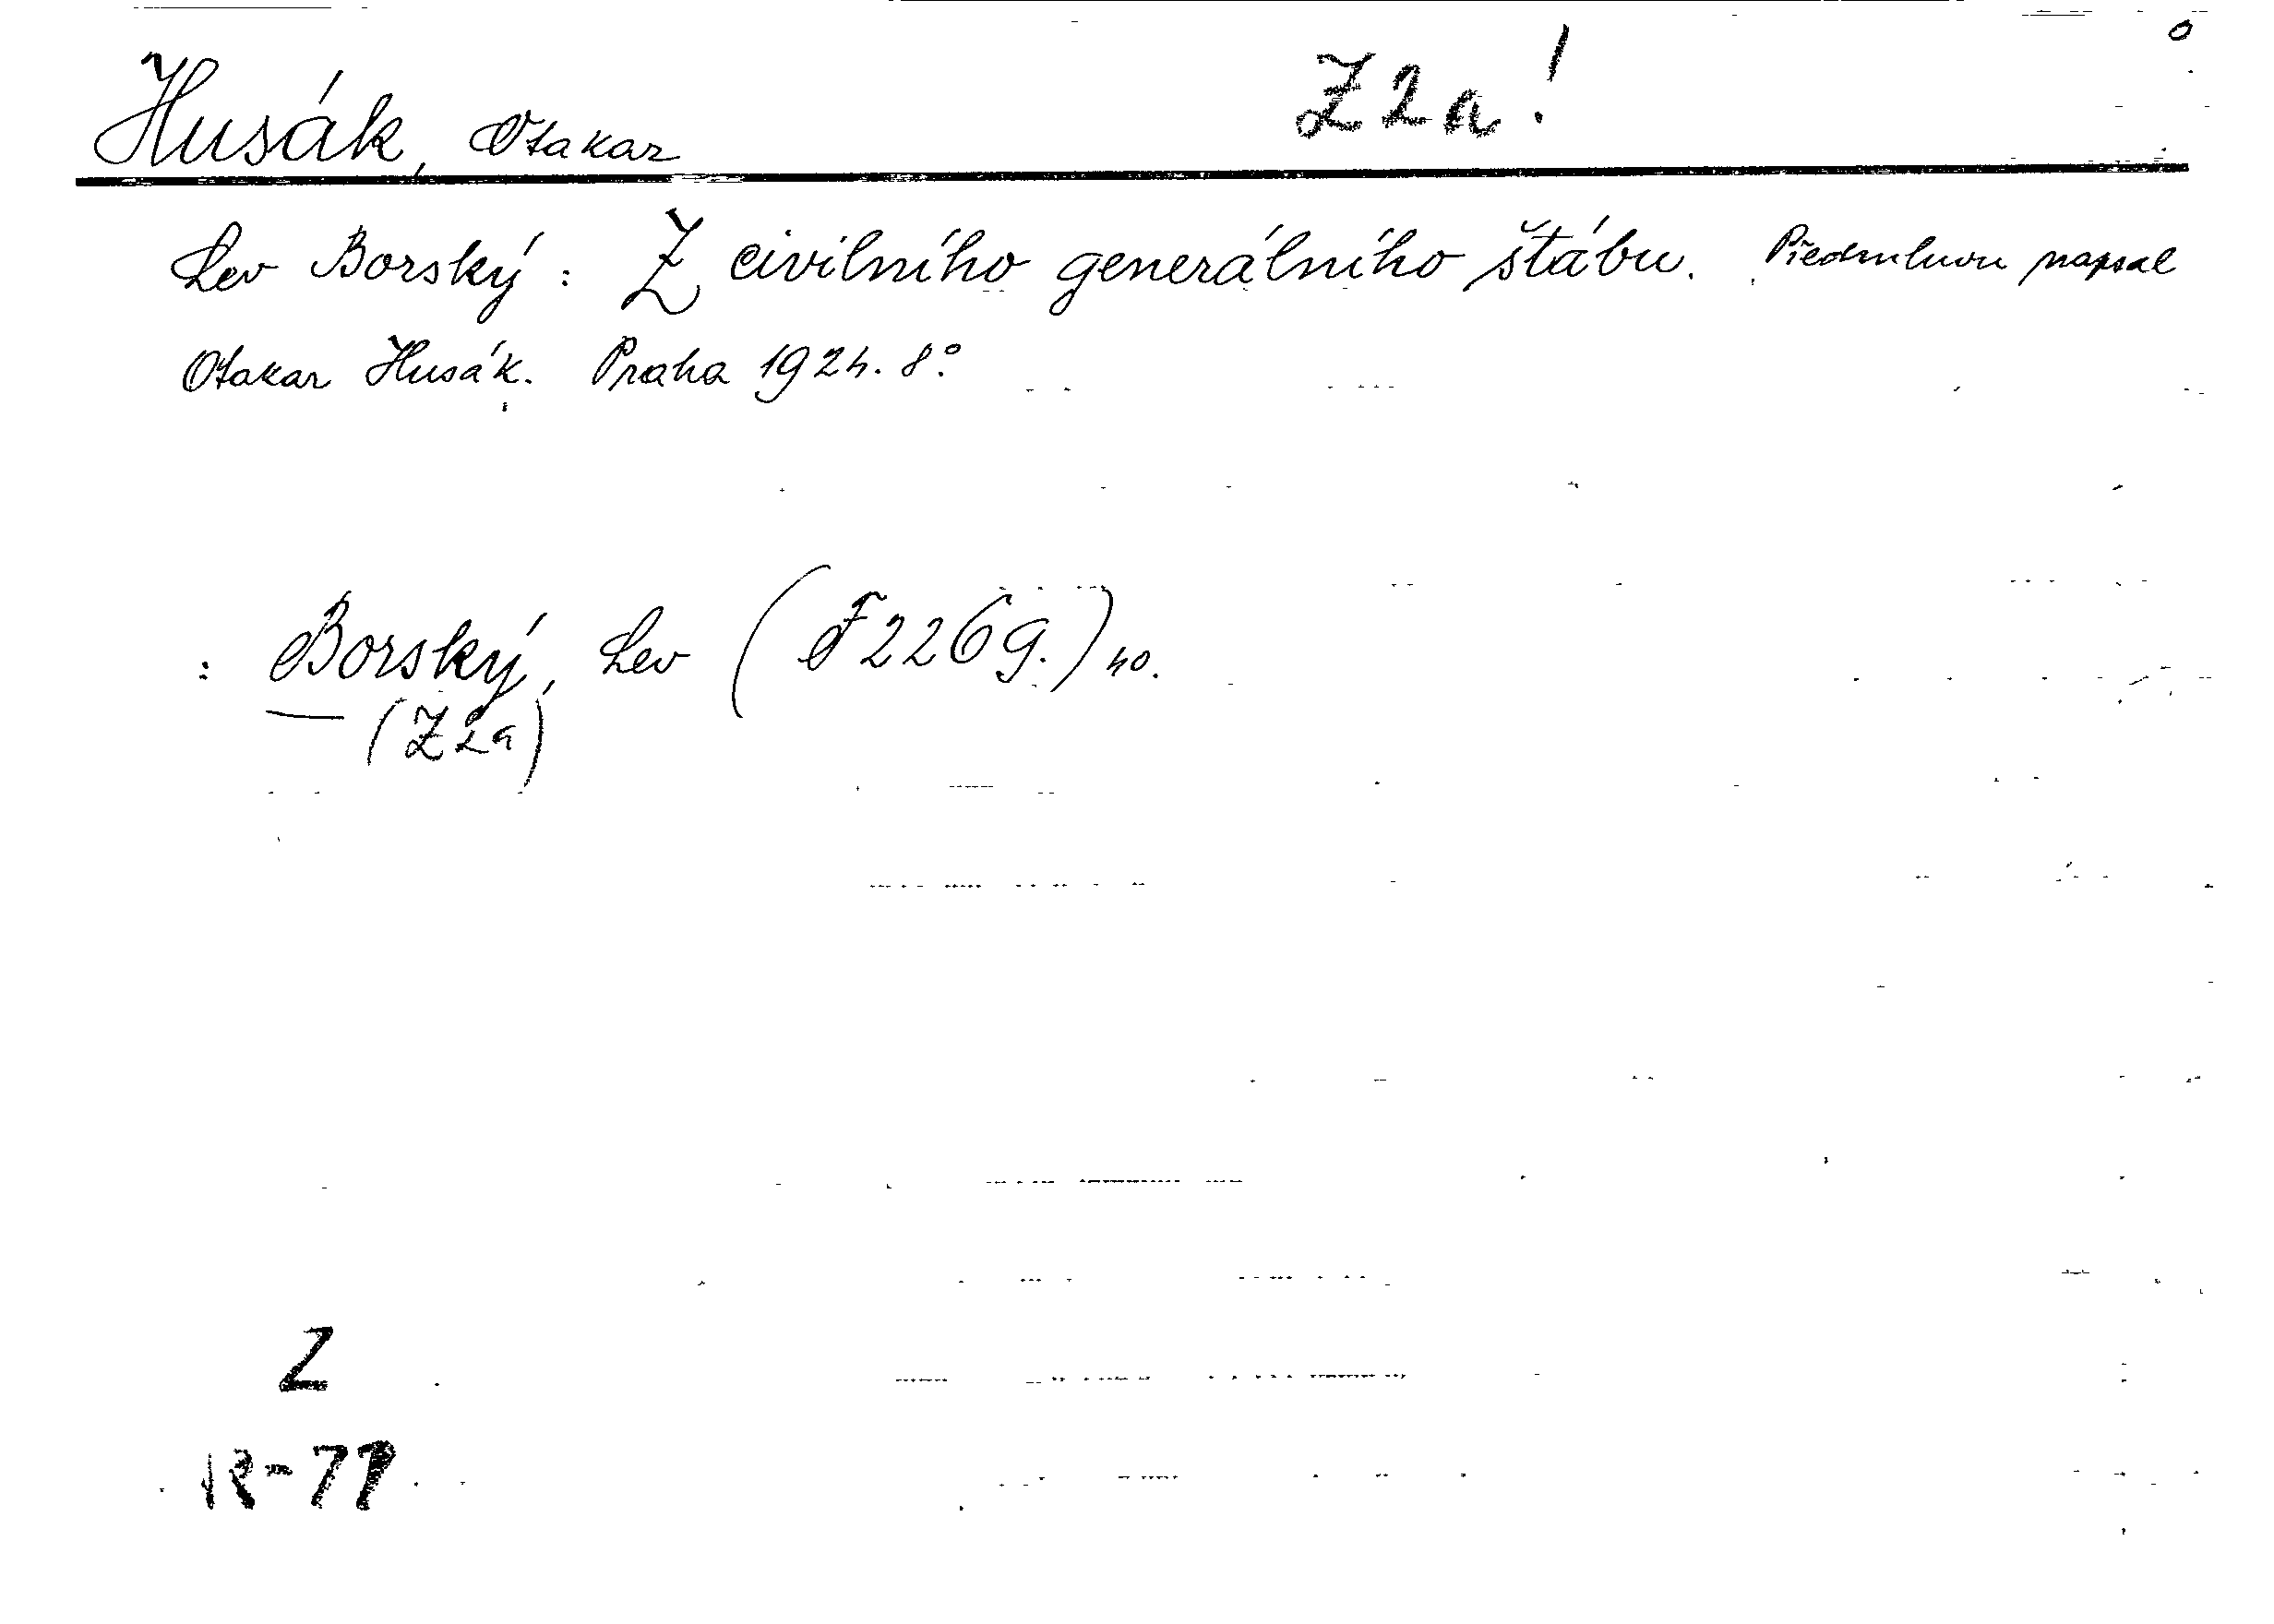 Husák, Otakar Z2a!
Lev Borský: Z civilního generálního štábu. Předmluvu napsal
Otakar Husák. Praha 1924. 8°
: Borský, Lev (F 2269.) 40.
— (Z2a)
Z